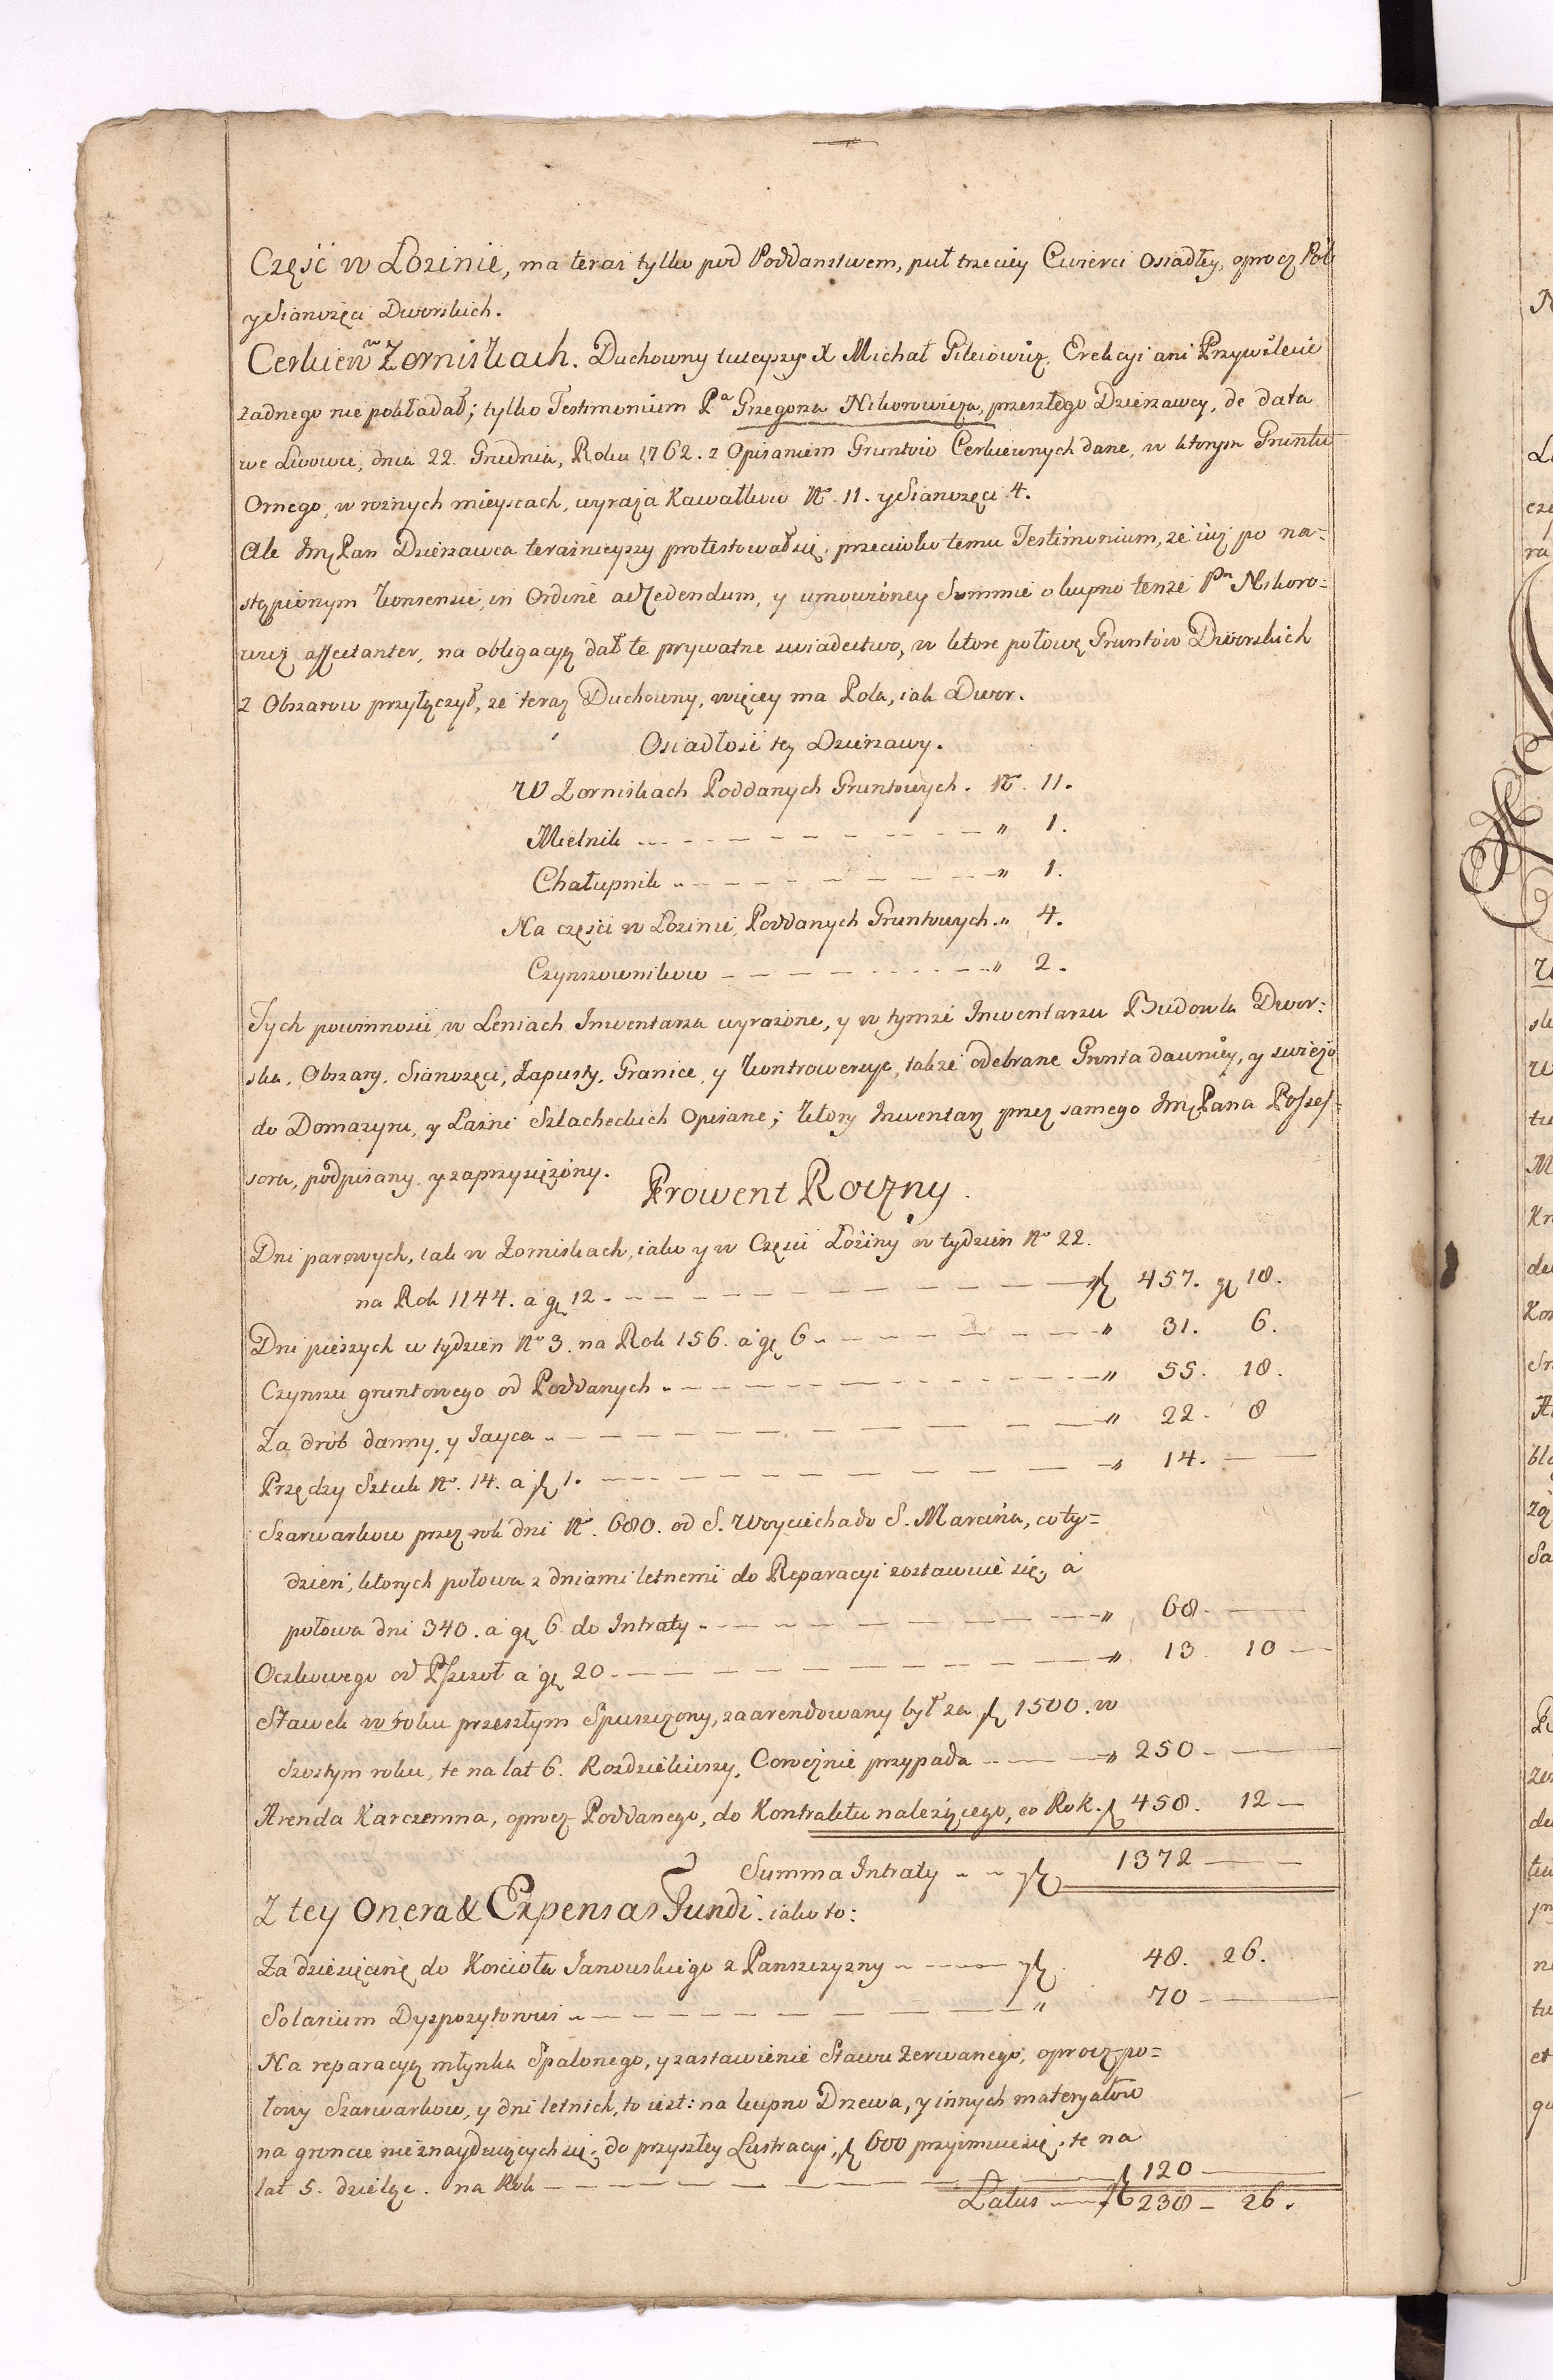 Część w Łozinie, ma teraz tylko pod Poddanstwem, puł trzeciey Cwierci osiadłey, oprocz Pól
y Sianozęci Dworskich.
Cerkiew w Zorniskach. Duchowny tuteyszy X Michał Pileiowicz, Erekcyi ani Przywileiu
żadnego nie pokładał; tylko Testimonium Pa Grzegorza Nikorowicza, przeszłego Dzierzawcy, de data
we Lwowie, dnia 22. Grudnia, Roku 1762. z Opisaniem Gruntow Cerkiewnych dane, w ktorym Gruntu
Ornego, w rożnych mieyscach, wyraża Kawałkow No. 11. y Sianozęci 4.
Ale Jmć Pan Dzierzawca teraznieyszy protestował się, przeciwko temu Testimonium, że iuż po na=
stąpionym Konsensie, in Ordine ad Cedendum, y umowioney Summie o kupno tenże Pn Nikoro=
wicz affectanter, na obligacyą dał te prywatne swiadectwo, w ktore połowę Gruntów Dworskich
z Obszarow przyłączył, ze teraz Duchowny, więcey ma Pola, iak Dwor.
Osiadłość tey Dzierzawy.
W Zorniskach Poddanych Gruntowych. No. 11.
Mielnik " 1.
Chałupnik " 1.
Na części w Łozinie, Poddanych Gruntowych. " 4.
Czynszownikow " 2.
Tych powinnosci, w Leniach Inwentarza wyrażone, y w tymże Inwentarzu Budowla Dwor=
ska, Obszary, Sianozęci, Zapusty, Granice, y Kontrowersye, takze odebrane Grunta dawniey, y swiezo
do Domazyru, y Łazni Szlacheckich Opisane; Ktory Inwentarz przez samego Jmć Pana Posses=
sora, podpisany, y zaprzysiężony.
Prowent Roczny.
Dni parowych, iak w Zorniskach, iako y w Części Łoziny w tydzień No 22.
na Rok 1144. a gr 12 zł 457. gr 18.
Dni pieszych w tydzien No 3. na Rok 156. a gr 6 " 31. 6.
Czynszu gruntowego od Poddanych " 55. 18.
Za drób danny, y Jayca " 22. 8
Przędzy Sztuk No. 14. a zł 1. " 14.
Szarwarkow przez rok dni No. 680. od S. Woyciecha do S. Marcina, co ty=
dzień, ktorych połowa z dniami letnemi do Reparacyi zostawuie się, a
połowa dni 340. a gr 6 do Intraty " 68.
Oczkowego od Pszczoł a gr 20 " 13. 10
Stawek w roku przeszłym Spuszczony, zaarendowany był za zł 1500. w
Szostym roku, te na lat 6. Rozdzieliwszy, Corocznie przypada " 250
Arenda Karczemna, oprocz Poddanego, do Kontraktu nalezącego, co Rok. zł 458. 12
Summa Intraty zł 1372
Z tey Onera & Expensas Fundi. iako to:
Za dziesięcinę do Koscioła Janowskiego z Panszczyzny zł 48. 26.
Solarium Dyspozytorowi " 70
Na reparacyą młynka Spalonego, y zastawienie Stawu Zerwanego, oprocz po=
łowy Szarwarkow, y dni letnich, to iest: na kupno Drzewa, y innych materyałow
na groncie nieznayduiących się, do przyszłey Lustracyi, zł 600 przyimuie się, te na
lat 5. dzieląc. na Rok zł 120
Latus zł 238 26.